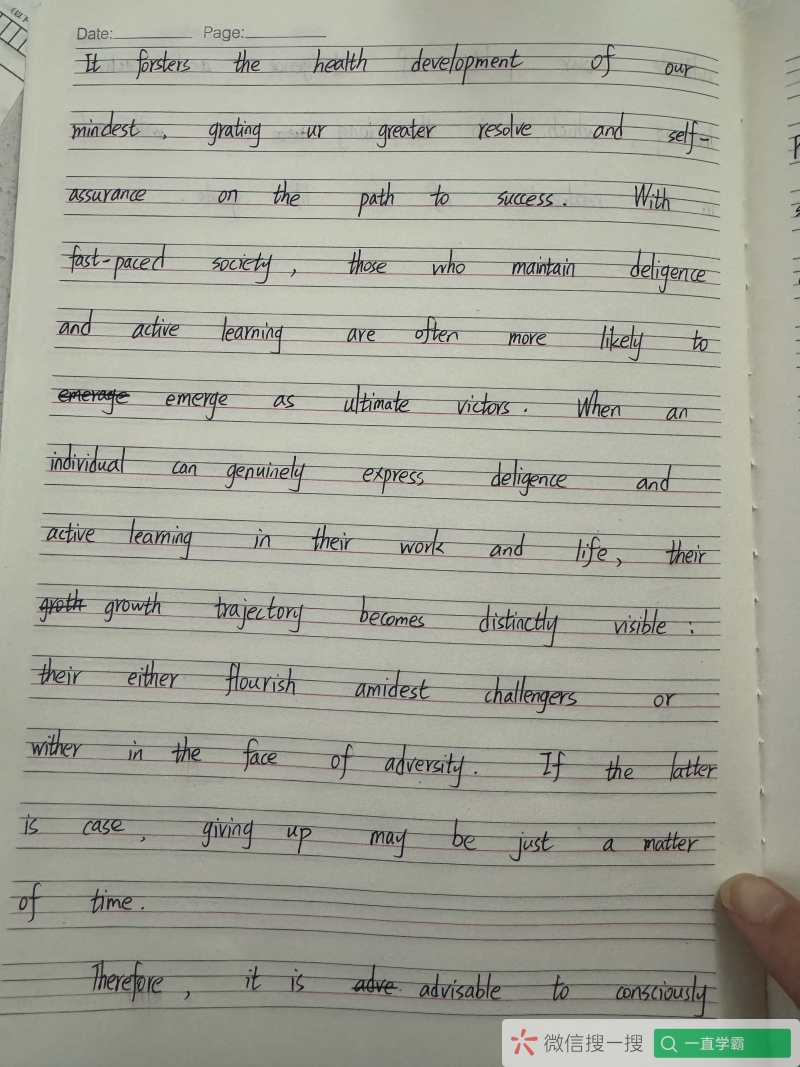 Date: Page:
It forsters the health development of our
mindest, grating ur greater resolve and self-
assurance on the path to success. With
fast-paced society, those who maintain deligence
and active learning are often more likely to
emerage emerge as ultimate victors. When an
individual can genuinely express deligence and
active learning in their work and life, their
groth growth trajectory becomes distinctly visible:
their either flourish amidest challengers or
wither in the face of adversity. If the latter
is case, giving up may be just a matter
of time.
Therefore, it is adve advisable to consciously
微信搜一搜 一直学霸